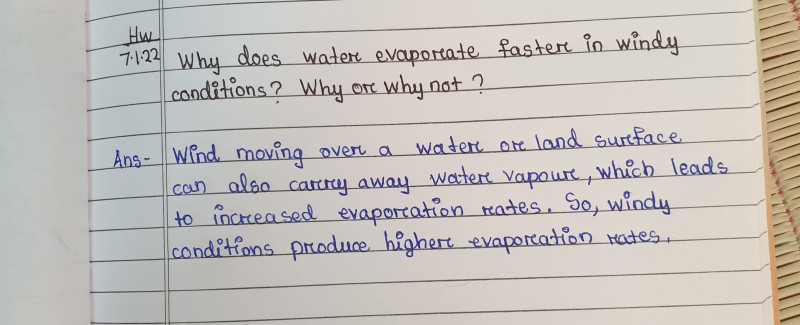 Hw
7.1.22 Why does water evaporate faster in windy
conditions? Why or why not ?
Ans- Wind moving over a water or land surface
can also carry away water vapour, which leads
to increased evaporation rates. So, windy
conditions produce higher evaporation rates.